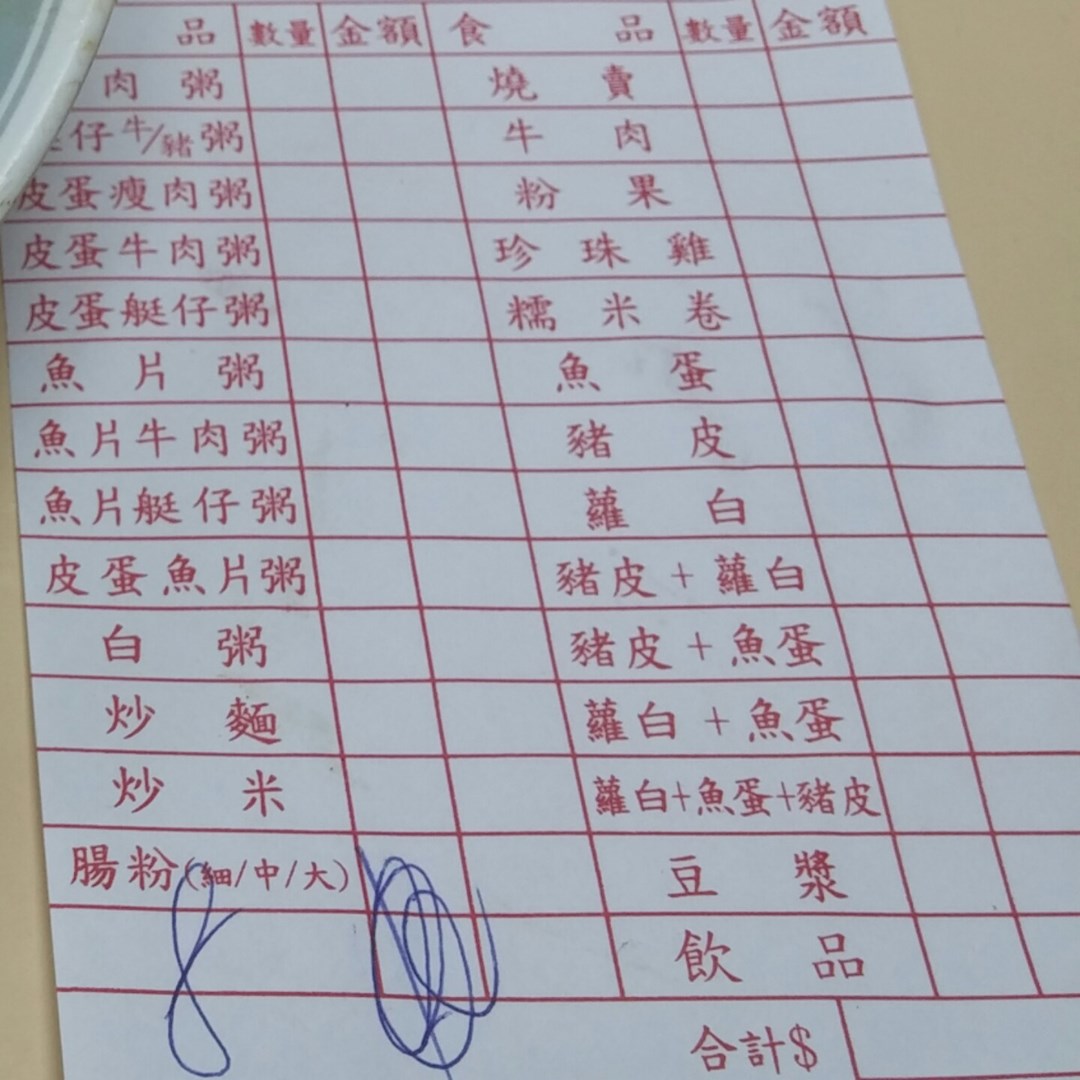 品 數量 金額 食 品 數量 金額
肉 粥 燒 賣
仔牛/豬粥 牛 肉
皮蛋瘦肉粥 粉 果
皮蛋牛肉粥 珍 珠 雞
皮蛋艇仔粥 糯 米 卷
魚 片 粥 魚 蛋
魚片牛肉粥 豬 皮
魚片艇仔粥 蘿 白
皮蛋魚片粥 豬皮+蘿白
白 粥 豬皮+魚蛋
炒 麵 蘿白+魚蛋
炒 米 蘿白+魚蛋+豬皮
腸粉(細/中/大) 豆 漿
8 飲 品
合計$